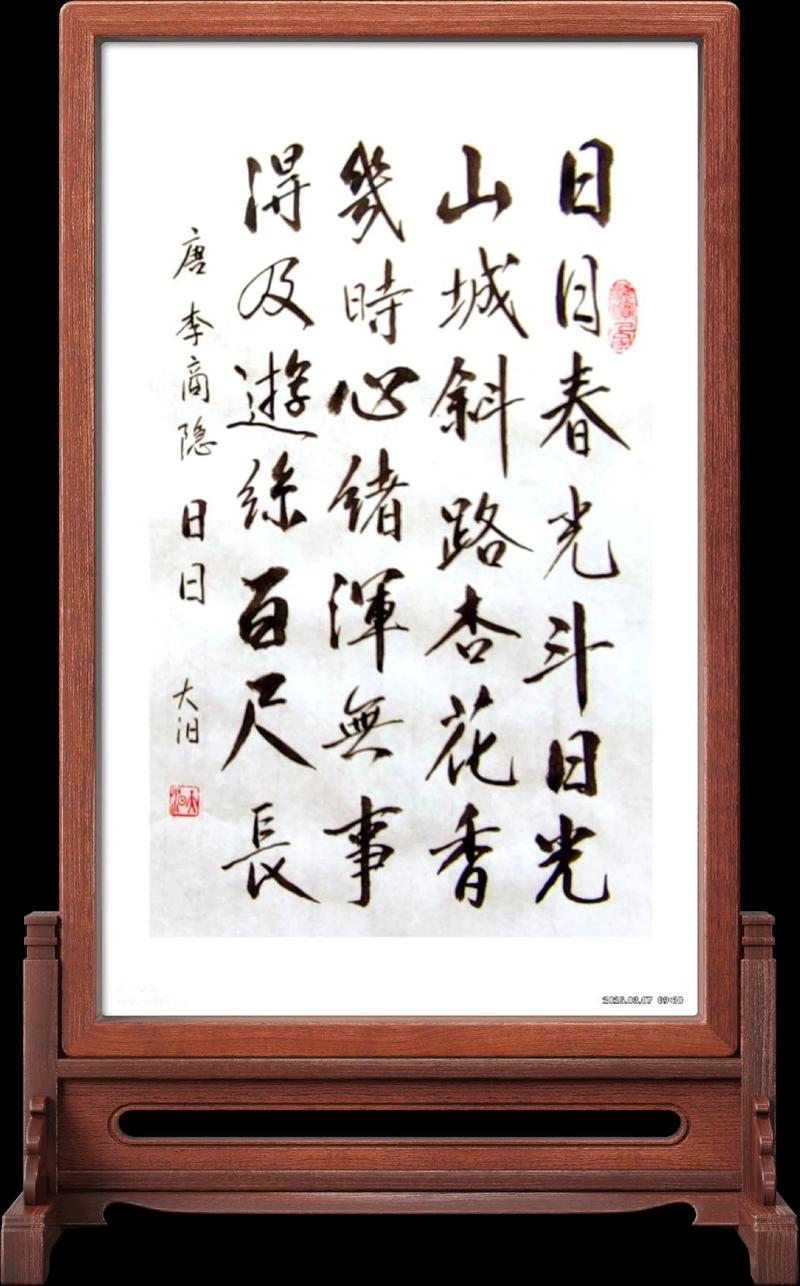 日日春光斗日光
山城斜路杏花香
幾時心緒渾無事
得及遊絲百尺長
唐 李商隐 日日
大泊
2025.03.17 09:30